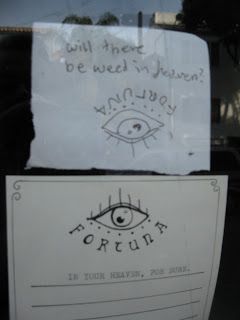 will there
be weed in heaven?
FORTUNA
FORTUNA
IN YOUR HEAVEN, FOR SURE.